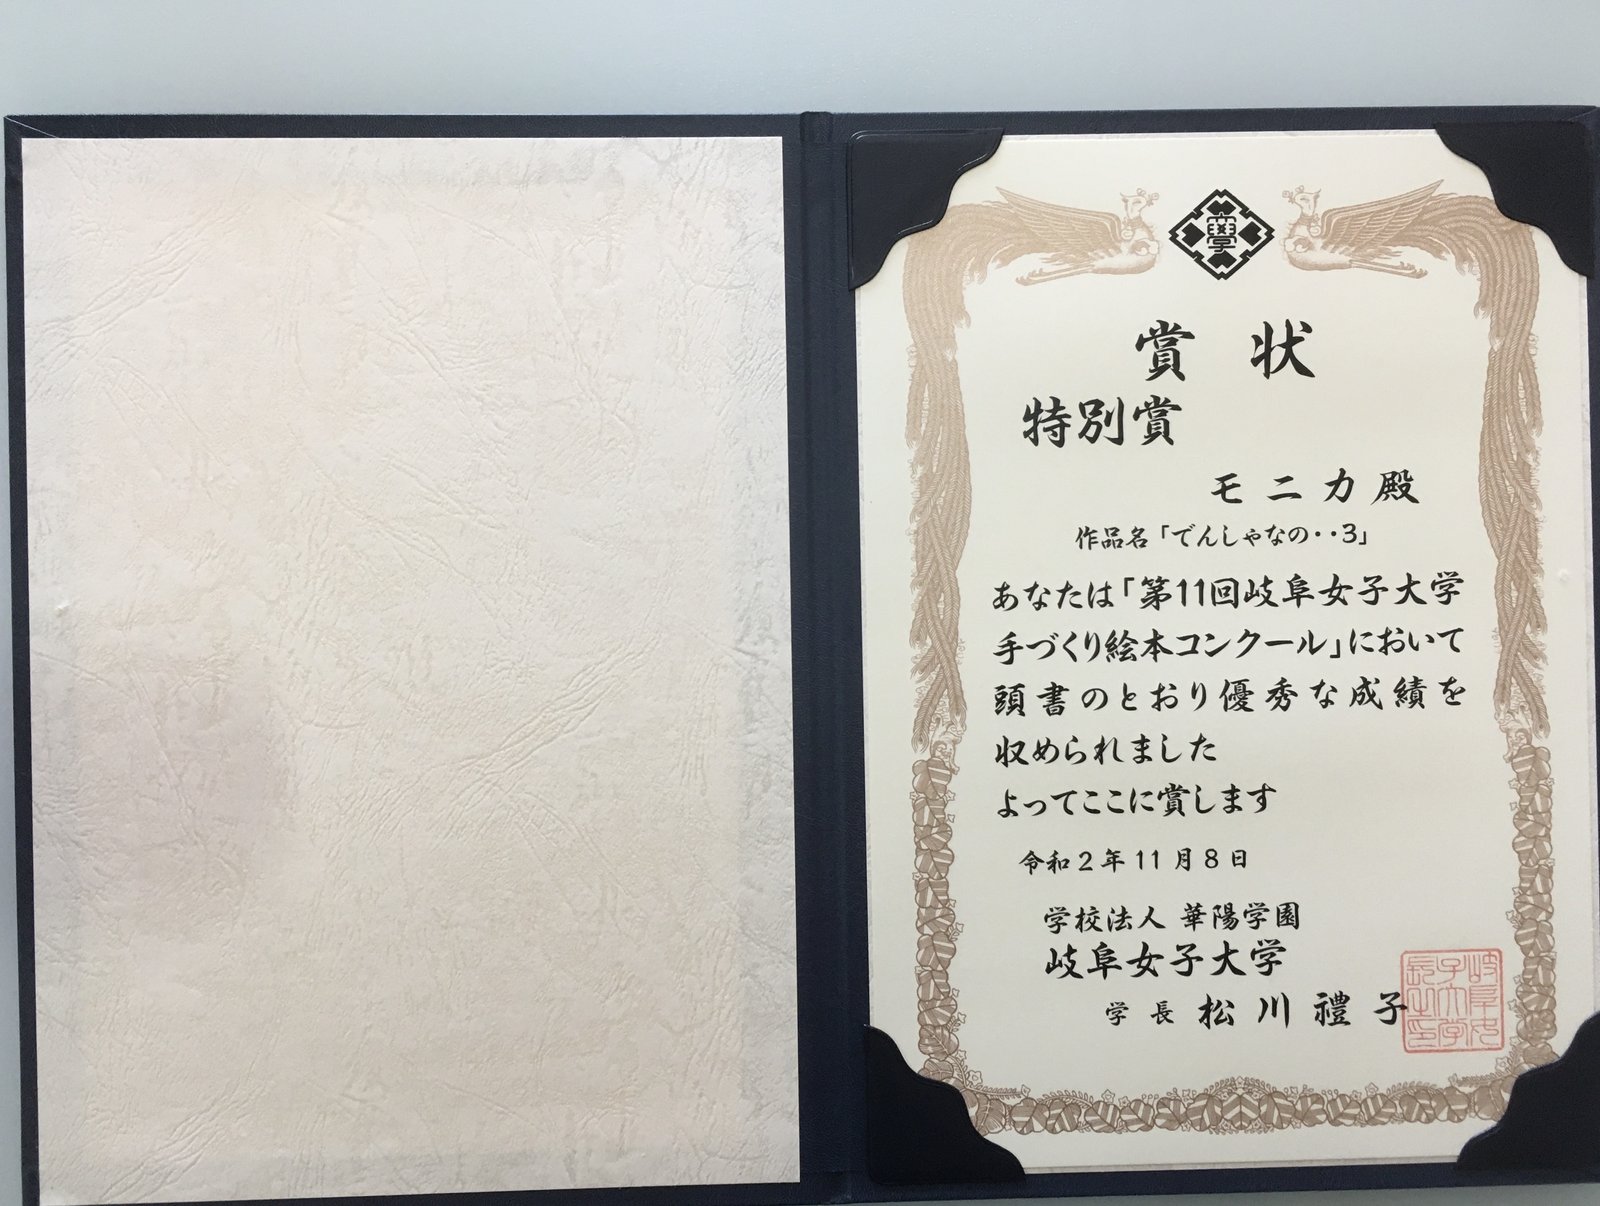 學
賞状
特別賞
モニカ殿
作品名「でんしゃなの・・3」
あなたは「第11回岐阜女子大学
手づくり絵本コンクール」において
頭書のとおり優秀な成績を
収められました
よってここに賞します
令和2年11月8日
学校法人 華陽学園
岐阜女子大学
学長 松川禮子
岐阜女
子大学
長之印